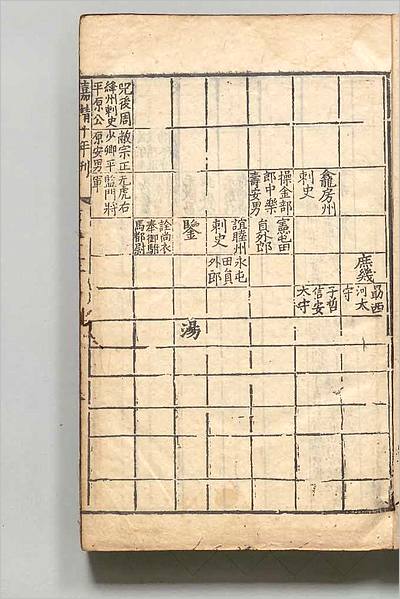 庶幾
勗西
河太
守
子哲
信安
太守
龕房州
刺史
憲屯田
員外郎
操金部
郎中樂
壽安男
誼睦州
刺史
永屯
田員
外郎
鑒
湯
詮尚衣
奉御駙
馬都尉
元虎右
監門將
軍
敵宗正
少卿平
原安男
兕後周
絳州刺史
平原公
嘉靖十年刊